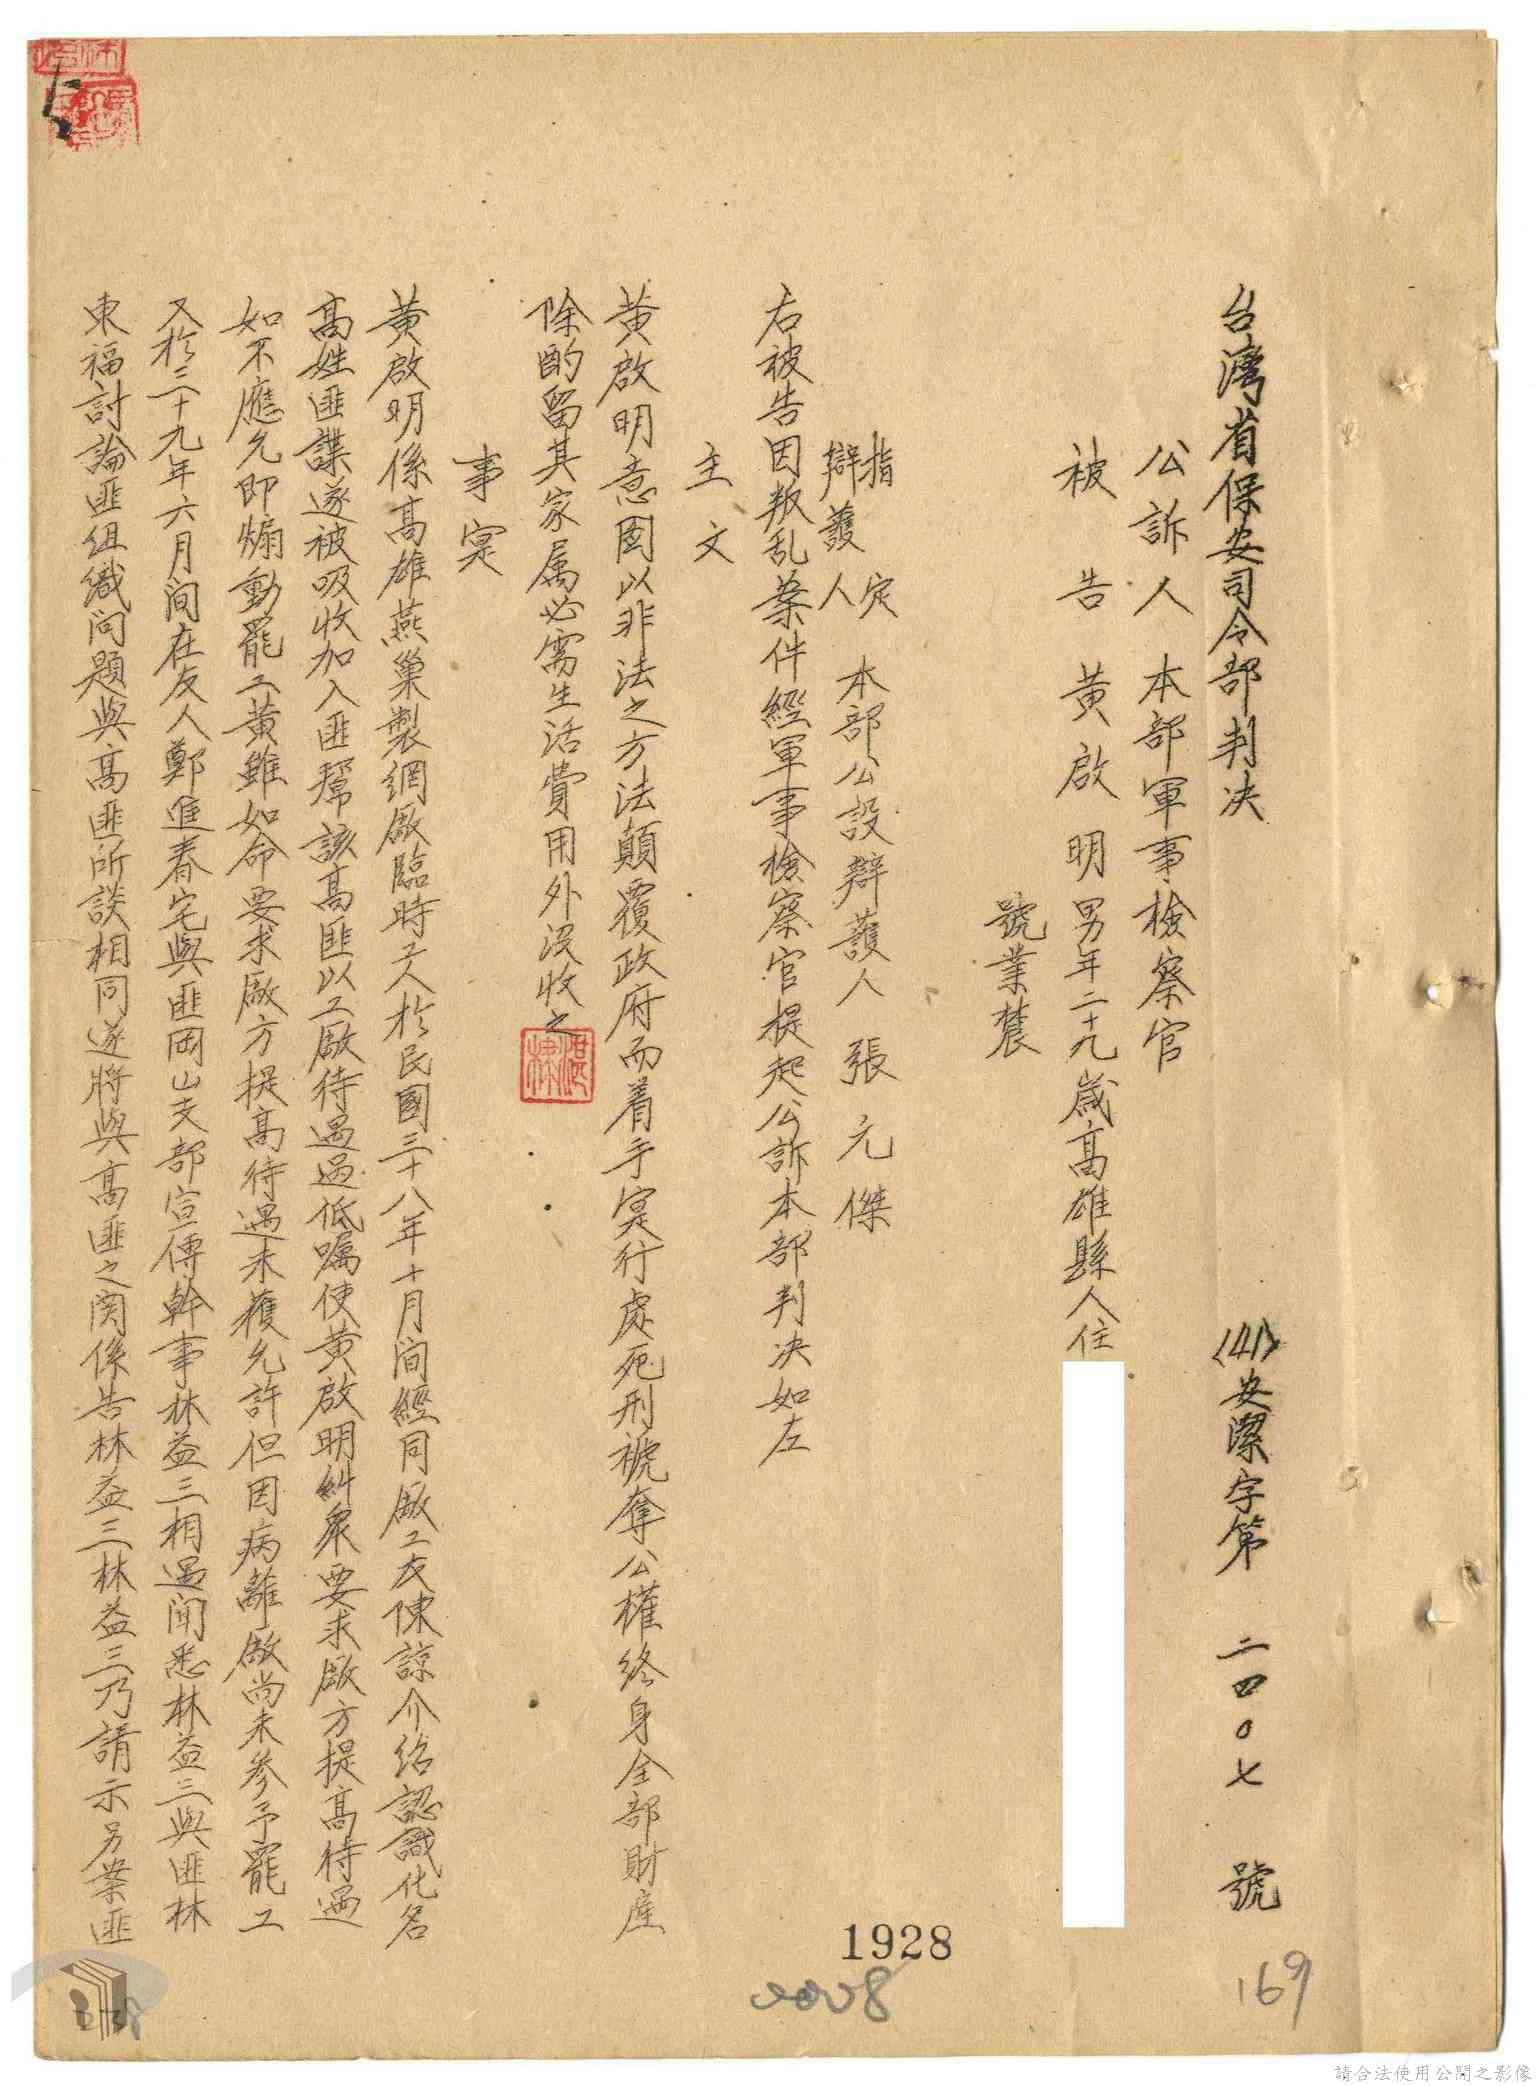 台湾省保安司令部判決
(41)安潔字第二四0七號
公訴人 本部軍事檢察官
被告 黄啟明 男年二十九歲高雄縣人住
號業農
指定辯護人 本部公設辯護人 張元傑
右被告因叛乱案件經軍事檢察官提起公訴本部判决如左
主文
黄啟明意图以非法之方法顛覆政府而着手寔行處死刑褫奪公權終身全部財產
除酌留其家属必需生活費用外沒收之
事寔
黄啟明係高雄燕巢製網廠臨時工人於民國三十八年十月间經同廠工友陳諒介紹認識化名
高姓匪諜遂被吸收加入匪帮該高匪以工廠待遇過低嘱使黄啟明糾衆要求廠方提高待遇
如不應允即煽動罷工黄雖如命要求廠方提高待遇未獲允許但因病離廠尚未参予罷工
又於三十九年六月间在友人鄭進春宅與匪岡山支部宣傳幹事林益三相遇闻悉林益三與匪林
東福討論匪组織问題與高匪所談相同遂將與高匪之関係告林益三林益三乃請示另案匪
1928
169
請合法使用公開之影像